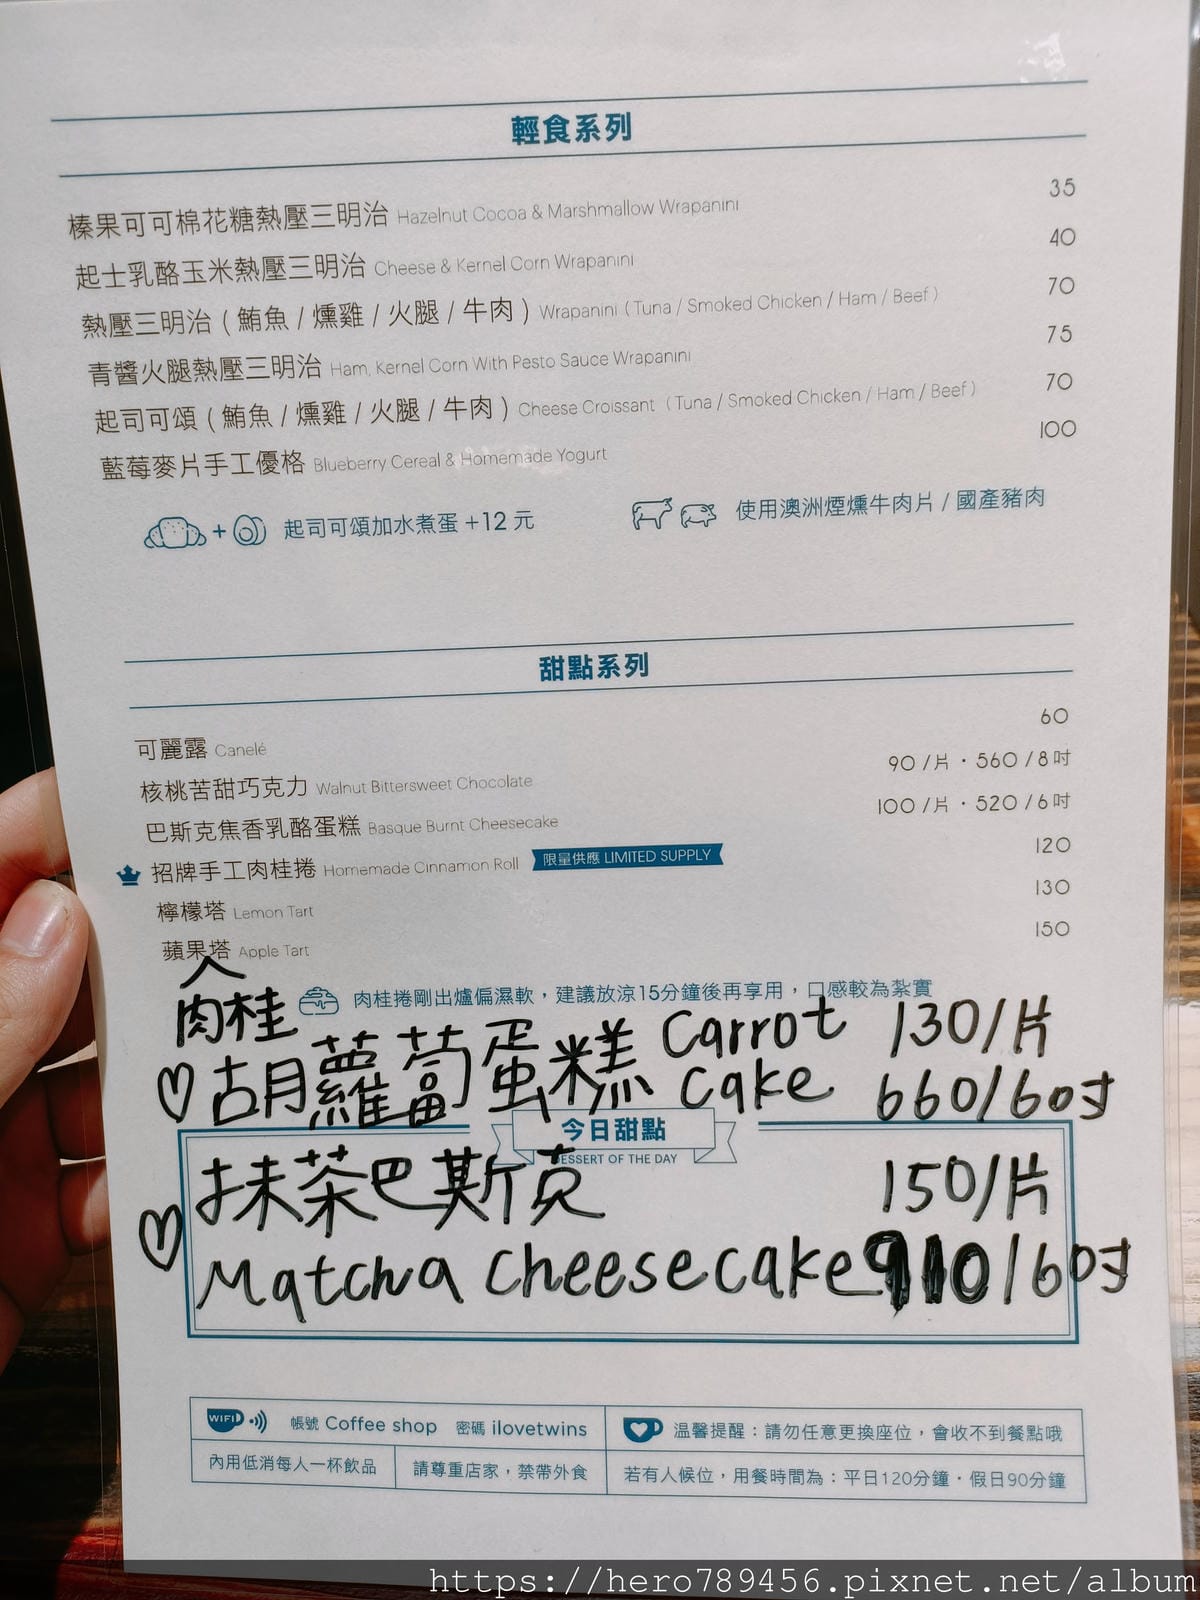 輕食系列
榛果可可棉花糖熱壓三明治 Hazelnut Cocoa & Marshmallow Wrapanini 35
起士乳酪玉米熱壓三明治 Cheese & Kernel Corn Wrapanini 40
熱壓三明治 ( 鮪魚 / 燻雞 / 火腿 / 牛肉 ) Wrapanini ( Tuna / Smoked Chicken / Ham / Beef ) 70
青醬火腿熱壓三明治 Ham, Kernel Corn With Pesto Sauce Wrapanini 75
起司可頌 ( 鮪魚 / 燻雞 / 火腿 / 牛肉 ) Cheese Croissant ( Tuna / Smoked Chicken / Ham / Beef ) 70
藍莓麥片手工優格 Blueberry Cereal & Homemade Yogurt 100
+ 起司可頌加水煮蛋 +12 元 使用澳洲煙燻牛肉片 / 國產豬肉
甜點系列
可麗露 Canelé 60
核桃苦甜巧克力 Walnut Bittersweet Chocolate 90 /片・560 /8吋
巴斯克焦香乳酪蛋糕 Basque Burnt Cheesecake 100 /片・520 /6吋
招牌手工肉桂捲 Homemade Cinnamon Roll 限量供應 LIMITED SUPPLY 120
檸檬塔 Lemon Tart 130
蘋果塔 Apple Tart 150
肉桂
肉桂捲剛出爐偏濕軟，建議放涼15分鐘後再享用，口感較為紮實
♡胡蘿蔔蛋糕 Carrot Cake 130/片
660/6吋
今日甜點
DESSERT OF THE DAY
♡抹茶巴斯克 150/片
Matcha Cheesecake 910/6吋
WIFI 帳號 Coffee shop 密碼 ilovetwins
溫馨提醒：請勿任意更換座位，會收不到餐點哦
內用低消每人一杯飲品
請尊重店家，禁帶外食
若有人候位，用餐時間為：平日120分鐘・假日90分鐘
https://hero789456.pixnet.net/album